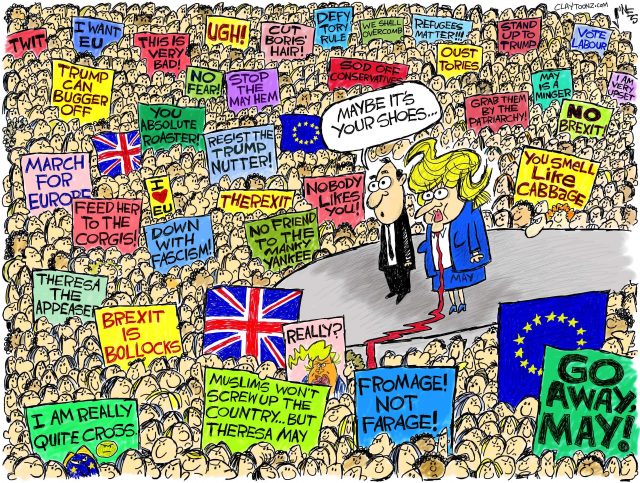 CLAYTOONZ.COM
TWIT
I WANT
EU
THIS IS
VERY
BAD!
UGH!
CUT
BORIS'
HAIR!
DEFY
TORY
RULE
WE SHALL
OVERCOMB
REFUGEES
MATTER!!!
STAND
UP TO
TRUMP
VOTE
LABOUR
TRUMP
CAN
BUGGER
OFF
NO
FEAR!
STOP
THE
MAYHEM
SOD OFF
CONSERVATIVES
OUST
TORIES
MAY
IS A
MINGER
I AM
VERY
UPSET
YOU
ABSOLUTE
ROASTER!
RESIST THE
TRUMP
NUTTER!
MAYBE IT'S
YOUR SHOES...
GRAB THEM
BY THE
PATRIARCHY!
NO
BREXIT
MARCH
FOR
EUROPE
I
EU
THEREXIT
NOBODY
LIKES
YOU!
YOU SMELL
LIKE
CABBAGE
FEED HER
TO THE
CORGIS!
DOWN
WITH
FASCISM!
NO FRIEND
TO THE
MANKY
YANKEE
MAY
THERESA
THE
APPEASER
BREXIT
IS
BOLLOCKS
REALLY?
I AM REALLY
QUITE CROSS.
MUSLIMS WON'T
SCREW UP THE
COUNTRY...BUT
THERESA MAY
FROMAGE!
NOT
FARAGE!
GO
AWAY,
MAY!